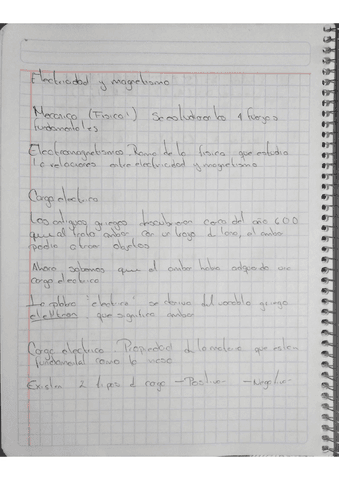 Electricidad y magnetismo
Mecanica (Fisica 1) Se estudiaron las 4 fuerzas
fundamentales
Electromagnetismo Rama de la fisica que estudia
la relaciones entre electricidad y magnetismo
Carga electrica
Los antiguos griegos descubrieron cerca del año 600
que al frotar ambar con un trapo de lana, el ambar
podia atraer objetos
Ahora sabemos que el ambar habia adquirido una
carga electrica
La palabra "electrica" se deriva del vocablo griego
elektron que significa ambar
Carga electrica Propiedad de la materia que es tan
fundamental como la masa
Existen 2 tipos de carga - Positiva - Negativa